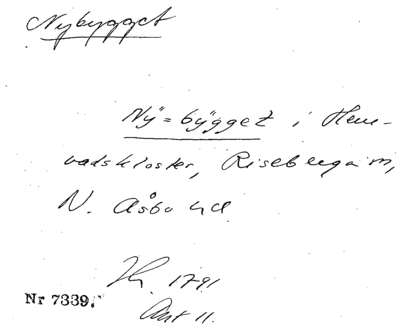 Nybygget
Ny=bygget i Herre-
vadskloster, Riseberga sn,
N. Åsbo hd
1791
Akt 11.
Nr 7339.